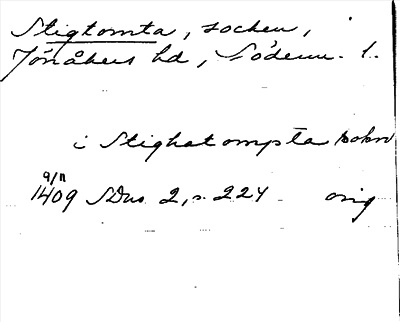 Stigtomta, socken,
Jönåkers hd, Söderm. l.
i Stighatompta sokn
9/11
1409 SDns 2, s. 224 orig